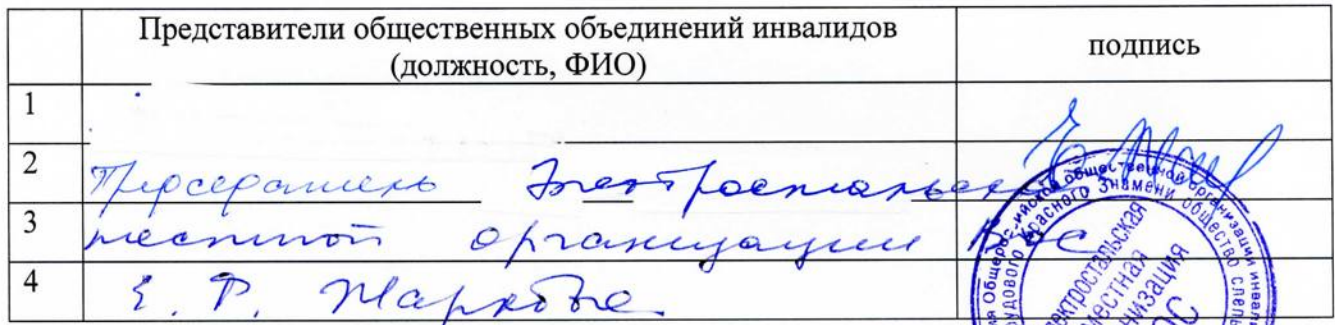 Представители общественных объединений инвалидов
(должность, ФИО)
подпись
1
2 Председатель Электростальской
3 местной организации ВОС
4 Е. Маркова
Общероссийской общественной организации
Трудового Красного Знамени общество
Электростальская
местная
организация
ВОС